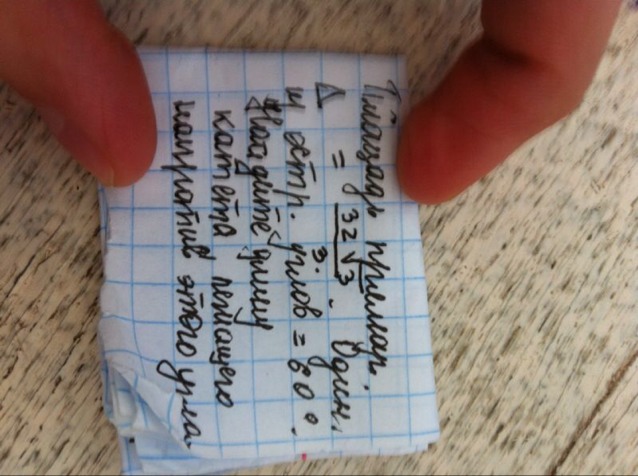 Площадь прямоуг.
Δ = 32√3/3. Один
из остр. углов = 60°.
Найдите длину
катета лежащего
напротив этого угла